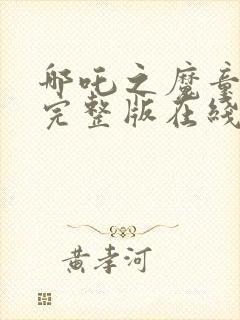 哪吒之魔童
完整版在线
黄孝河